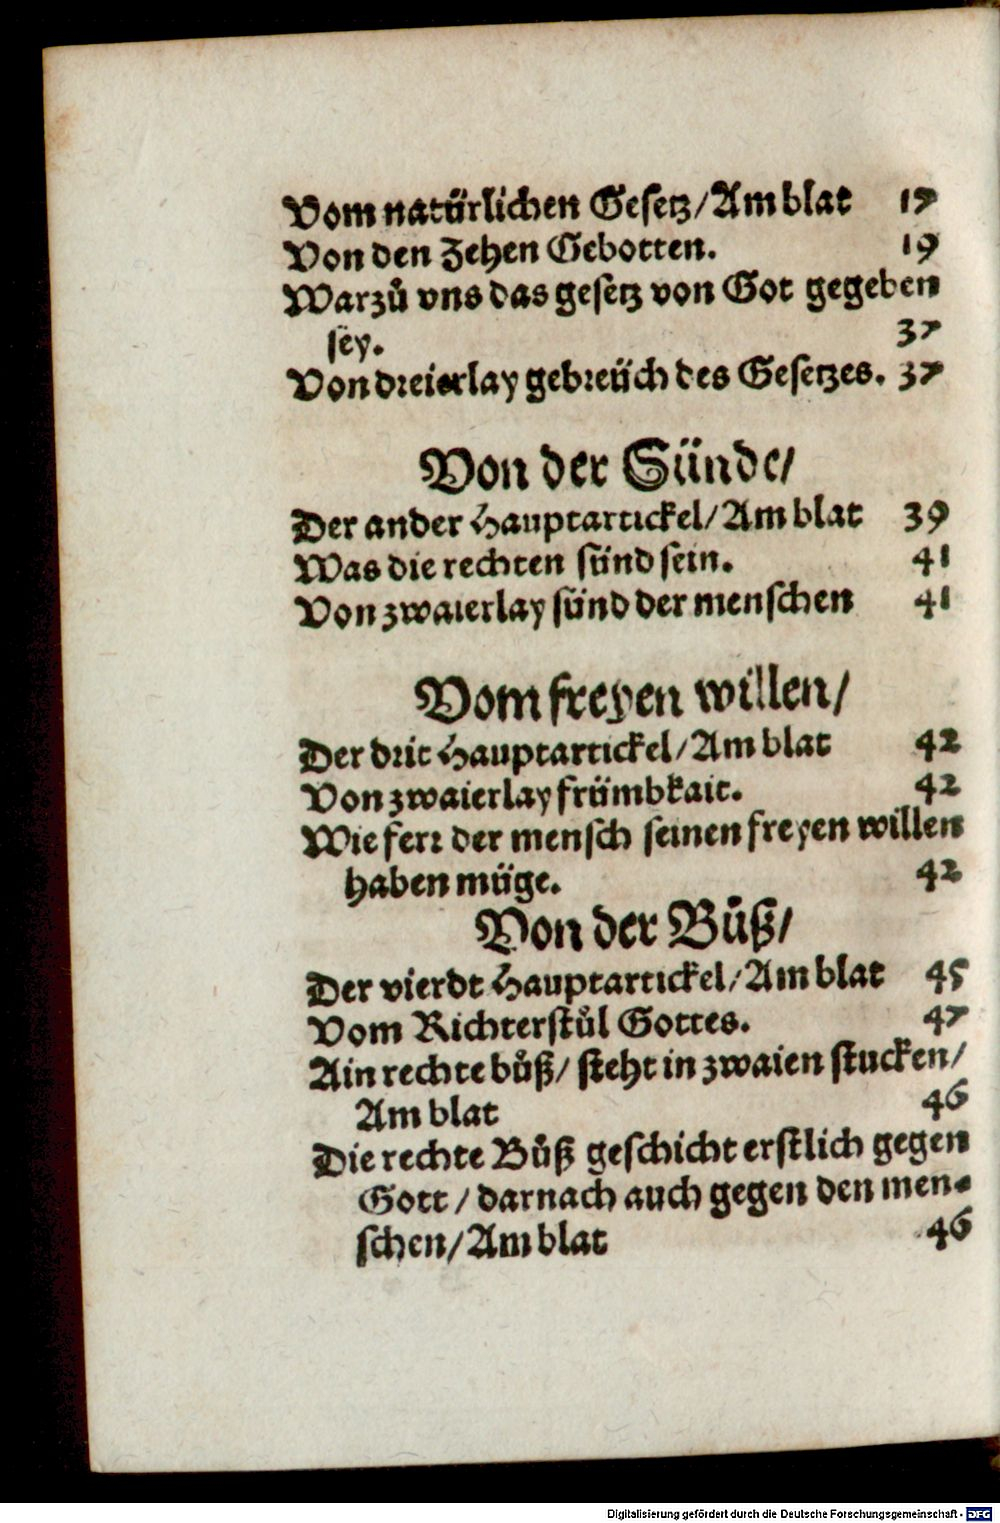 Vom natürlichen Gesetz/Am blat 17
Von den Zehen Gebotten. 19
Warzů vns das gesetz von Got gegeben
sey. 37
Von dreierlay gebreüch des Gesetzes. 37
Von der Sünde/
Der ander Hauptartickel/Am blat 39
Was die rechten sünd sein. 41
Von zwaierlay sünd der menschen 41
Vom freyen willen/
Der drit Hauptartickel/Am blat 42
Von zwaierlay frümbkait. 42
Wie ferr der mensch seinen freyen willen
haben müge. 42
Von der Bůß/
Der vierdt Hauptartickel/Am blat 45
Vom Richterstůl Gottes. 47
Ain rechte bůß/ steht in zwaien stucken/
Am blat 46
Die rechte Bůß geschicht erstlich gegen
Gott / darnach auch gegen den men-
schen/Am blat 46
Digitalisierung gefördert durch die Deutsche Forschungsgemeinschaft - DFG